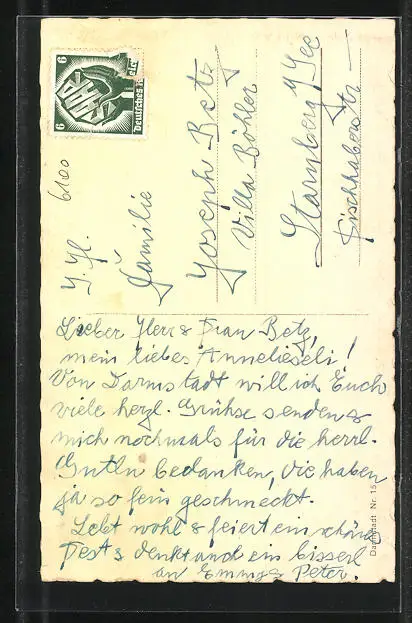 6
6
Deutsches Reich
6100
Familie
Joseph Betz
Villa Böhler
Starnberg / See
Lieber Herr & Frau Betz,
mein liebes Annelieseli!
Von Darmstadt will ich Euch
viele herzl. Grühse senden &
mich nochmals für die herrl.
Gutln bedanken, die haben
ja so fein geschmeckt.
Lebt wohl & feiert ein schönes
Fest & denkt auch ein bisserl
an Emmy & Peter.
Darmstadt Nr. 15